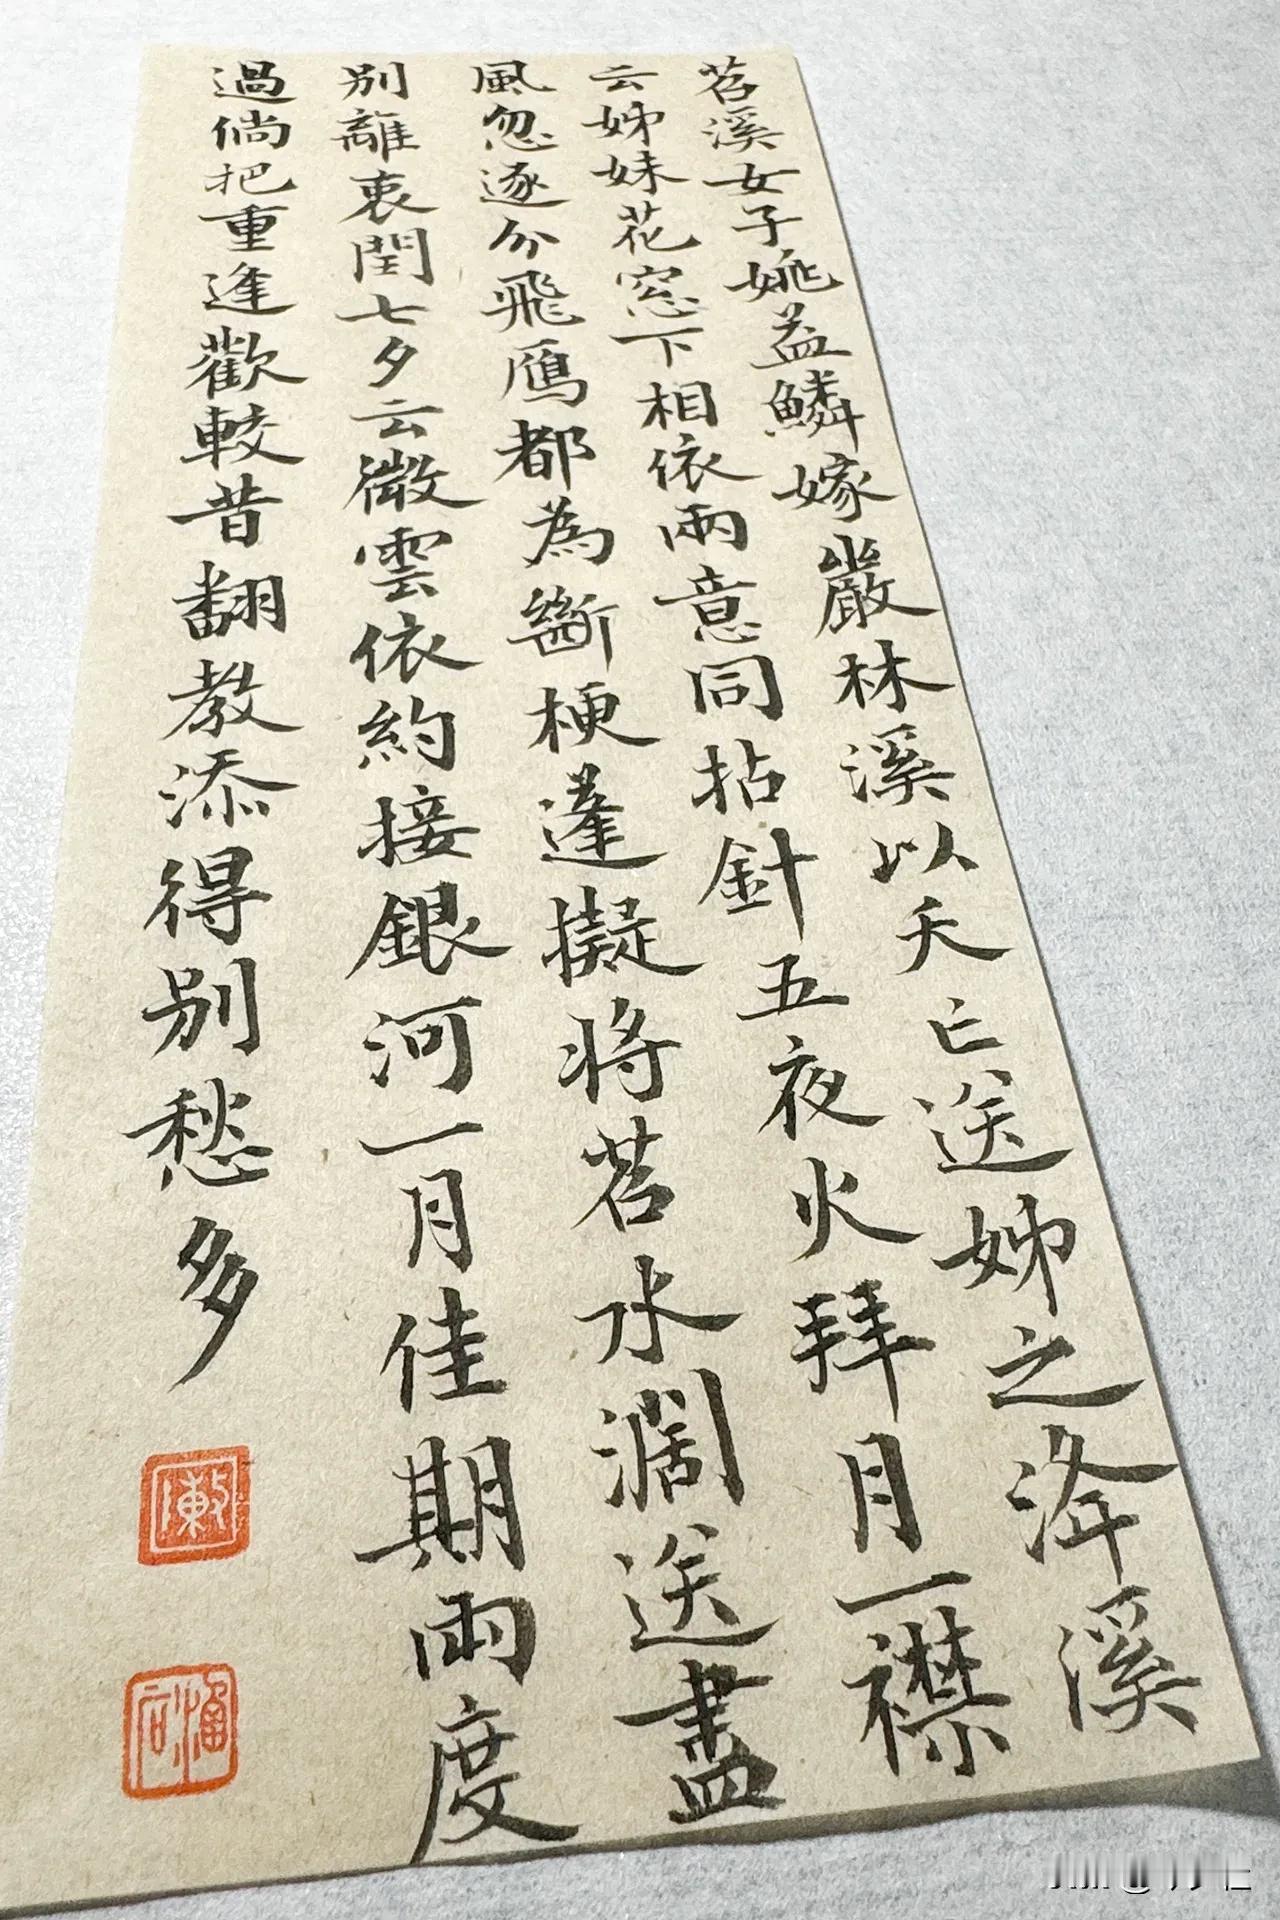 苕溪女子姚益鱗嫁嚴林溪以夭亡送姊之浲溪
云姊妹花窓下相依兩意同拈針五夜火拜月一襟
風忽逐分飛鴈都為斷梗蓬擬將苕水濶送盡
別離衷閏七夕云微雲依約接銀河一月佳期兩度
過倘把重逢歡較昔翻教添得別愁多